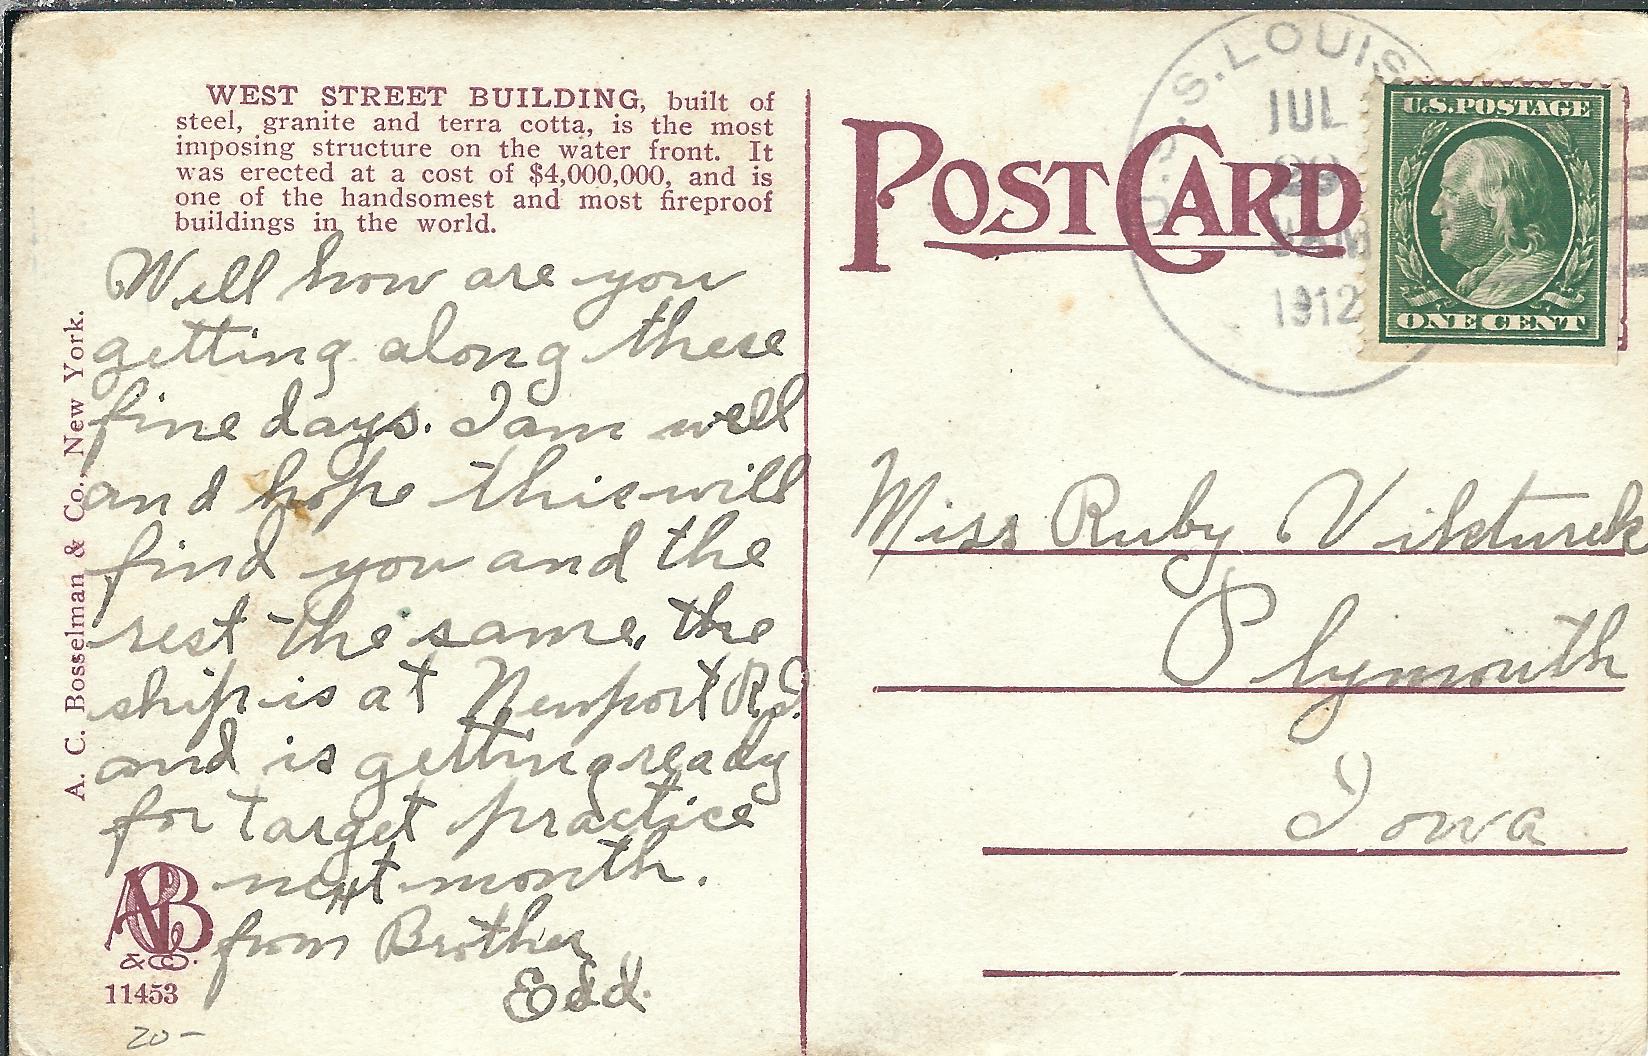 WEST STREET BUILDING, built of
steel, granite and terra cotta, is the most
imposing structure on the water front. It
was erected at a cost of $4,000,000, and is
one of the handsomest and most fireproof
buildings in the world.
Well how are you
getting along these
fine days. I am well
and hope this will
find you and the
rest the same. the
ship is at Newport R.I.
and is getting ready
for target practice
next month.
from Brother
Edd.
A. C. Bosselman & Co., New York.
ACB
& CO.
11453
20-
POST CARD
U.S.S. LOUIS
JUL
AM
1912
U.S. POSTAGE
ONE CENT
Miss Ruby
Plymouth
Iowa